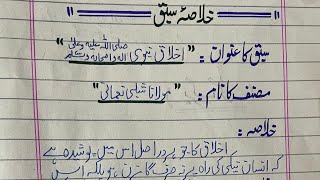 خلاصۂ سبق
سبق کا عنوان : " اخلاقِ نبوی صلی اللہ علیہ وعلیٰ آلہ واصحابہ وسلم "
مصنف کا نام : " مولانا شبلی نعمانی "
خلاصہ :
اخلاق کا جو ہر دراصل اس میں پوشیدہ ہے
کہ انسان نیکی کی راہ پر نہ صرف گامزن ہو بلکہ اس